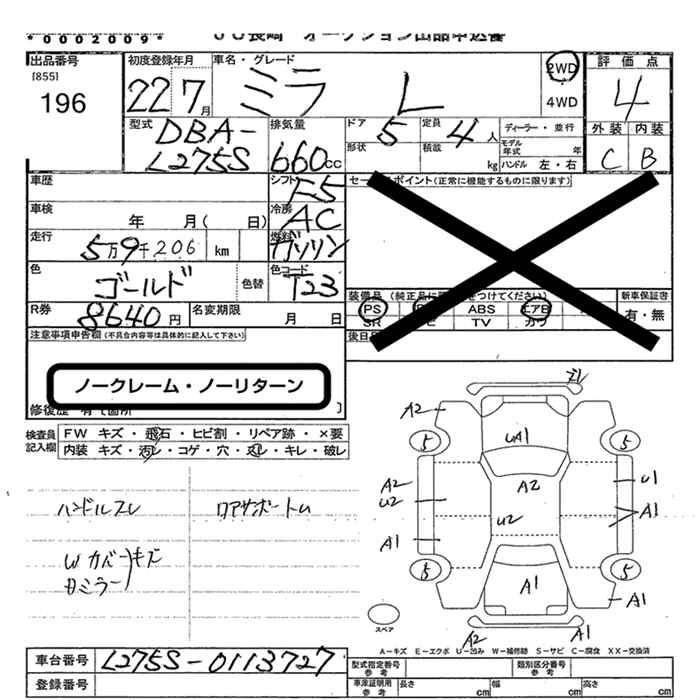 *0002009*
ＪＵ長崎 オークション出品申込書
出品番号
[855]
196
初度登録年月
22 7月
車名・グレード
ミラ L
2WD
4WD
評価点
4
外装 内装
C B
型式
DBA-
L275S
排気量
660cc
ドア
5
形状
定員
4人
積載
kg
ディーラー・並行
モデル年式 年
ハンドル 左・右
車歴
シフト
F5
セールスポイント(正常に機能するものに限ります)
車検
年 月( 日)
冷房
AC
走行
5万9千206 km
燃料
ガソリン
色
ゴールド
色替
色コード
T23
装備品 (純正品に をつけてください)
PS ABS エアB
SR TV カワ
新車保証書
有・無
R券
8640円
名変期限
月 日
後日
注意事項申告欄(不具合内容等は具体的に記入して下さい)
ノークレーム・ノーリターン
修復歴 有で箇所
検査員
記入欄
FW キズ・飛石・ヒビ割・リペア跡・×要
内装 キズ・汚レ・コゲ・穴・スレ・キレ・破レ
ハンドルスレ
Wカバー キズ
Dミラー
リアサポートム
A2
U1
A1
A2
5
5
A2
U2
U2
U1
A1
A1
5
5
A1
A1
A2
A1
スペア
A-キズ E-エクボ U-凹み W-補修跡 S-サビ C-腐食 XX-交換済
車台番号
L275S-0113727
登録番号
型式指定番号
参考
類別区分番号
参考
車庫証明用
参考
長さ cm
幅 cm
高さ cm